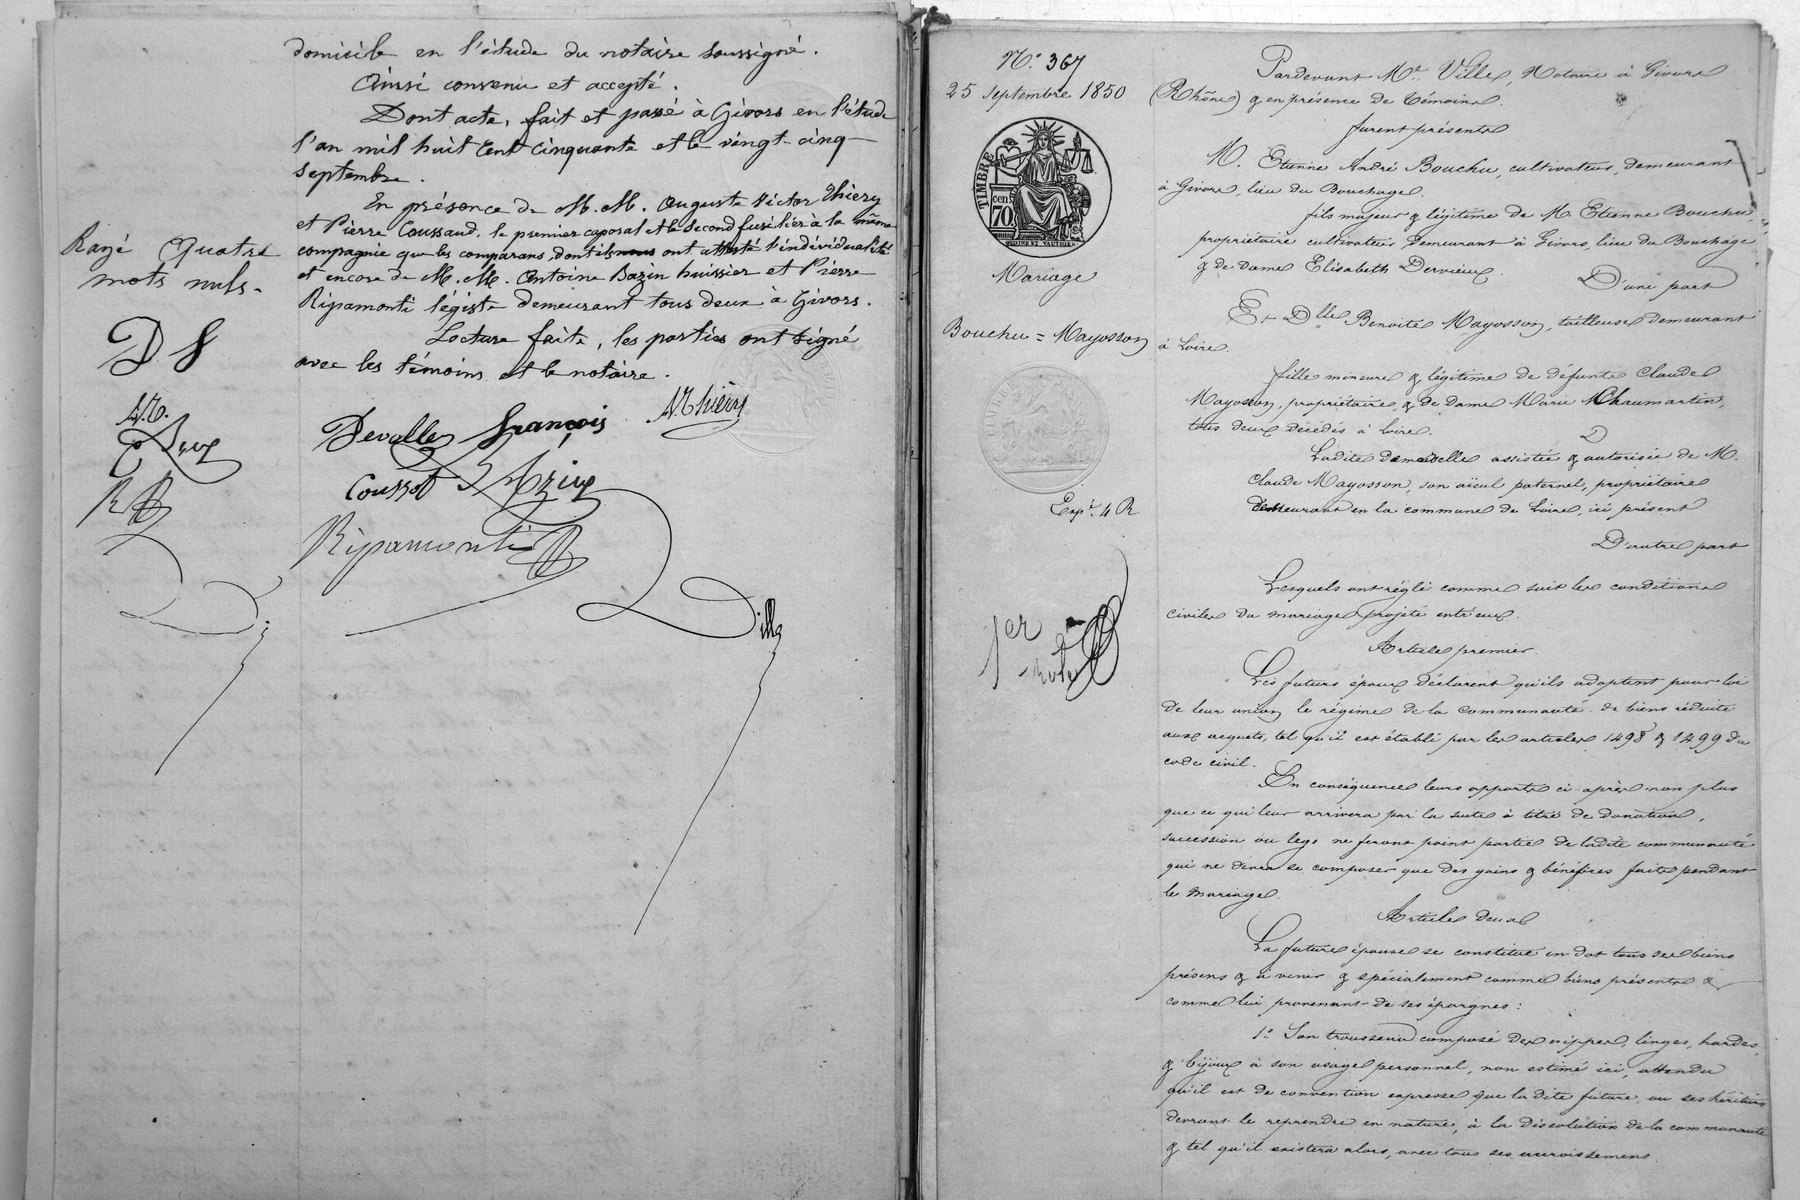 domicile en l'étude du notaire soussigné.
Ainsi convenu et accepté.
Dont acte, fait et passé à Givors en l'étude
l'an mil huit cent cinquante et le vingt-cinq
septembre.
En présence de M.M. Auguste Victor Thiery
et Pierre Coussaud, le premier caporal et le second fusilier à la même
compagnie que les comparans, dont ils nous ont attesté l'individualité
et encore de M.M. Antoine Bazin huissier et Pierre
Ripamonti légiste demeurant tous deux à Givors.
Lecture faite, les parties ont signé
avec les témoins et le notaire.
Rayé quatre
mots nuls.
D f
Devalle françois
AVthiery
Ripamonti
Ville
N.o 367
25 septembre 1850
TIMBRE
cen
70
Mariage
Bouchu = Mayosson
Exp.n 4 R
1er
rôle
Pardevant Me. Ville, Notaire à Givors
(Rhône) & en présence de témoins.
furent présents
M. Etienne André Bouchu, cultivateur, demeurant
à Givors, lieu du Bouchage.
fils majeur & légitime de M. Etienne Bouchu,
propriétaire cultivateur demeurant à Givors, lieu du Bouchage
& de dame Elisabeth Dervieux.
D'une part
Et Dlle Benoite Mayosson, tailleuse demeurant
à Loire.
fille mineure & légitime de défunts Claude
Mayosson, propriétaire, & de Dame Marie Chaumartin,
tous deux décédés à Loire.
Ladite demoiselle assistée & autorisée de M.
Claude Mayosson, son aïeul paternel, propriétaire
demeurant en la commune de Loire, ici présent
D'autre part
Lesquels ont réglé comme suit les conditions
civiles du mariage projeté entr'eux.
Article premier.
Les futurs époux déclarent qu'ils adoptent pour loi
de leur union le régime de la communauté de biens réduite
aux acquets, tel qu'il est établi par les articles 1498 & 1499 du
code civil.
En conséquence leurs apports ci-après non plus
que ce qui leur arrivera par la suite à titre de donation,
succession ou legs ne feront point partie de ladite communauté
qui ne devra se composer que des gains & bénéfices faits pendant
le mariage.
Article deux
La future épouse se constitue en dot tous ses biens
présens & à venir & spécialement comme biens présents &
comme lui provenant de ses épargnes:
1.o Son trousseau composé de nippes, linges, hardes,
& bijoux à son usage personnel, non estimé ici, attendu
qu'il est de convention expresse que ladite future ou ses héritiers
devront le reprendre en nature, à la dissolution de la communauté
& tel qu'il existera alors, avec tous ses accroissemens